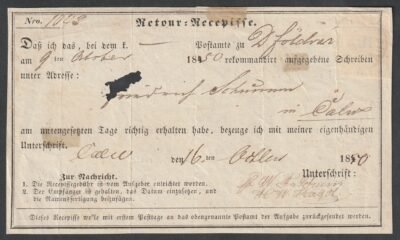 Nro. 1073 Retour-Recepisse.
Daß ich das, bei dem k. — Postamte zu D földvar
am 9ten Oktober 1850 rekommandirt aufgegebene Schreiben
unter Adresse:
Friedrich
in Calw
am untengesetzten Tage richtig erhalten habe, bezeuge ich mit meiner eigenhändigen
Unterschrift.
Calw den 16ten 1850
Zur Nachricht. Unterschrift:
1. Die Recepissegebühr ist vom Aufgeber entrichtet worden.
2. Der Empfänger ist gehalten, das Datum einzusetzen, und
die Namensfertigung beizufügen.
Dieses Recepisse wolle mit erstem Posttage an das obengenannte Postamt der Aufgabe zurückgesendet werden.